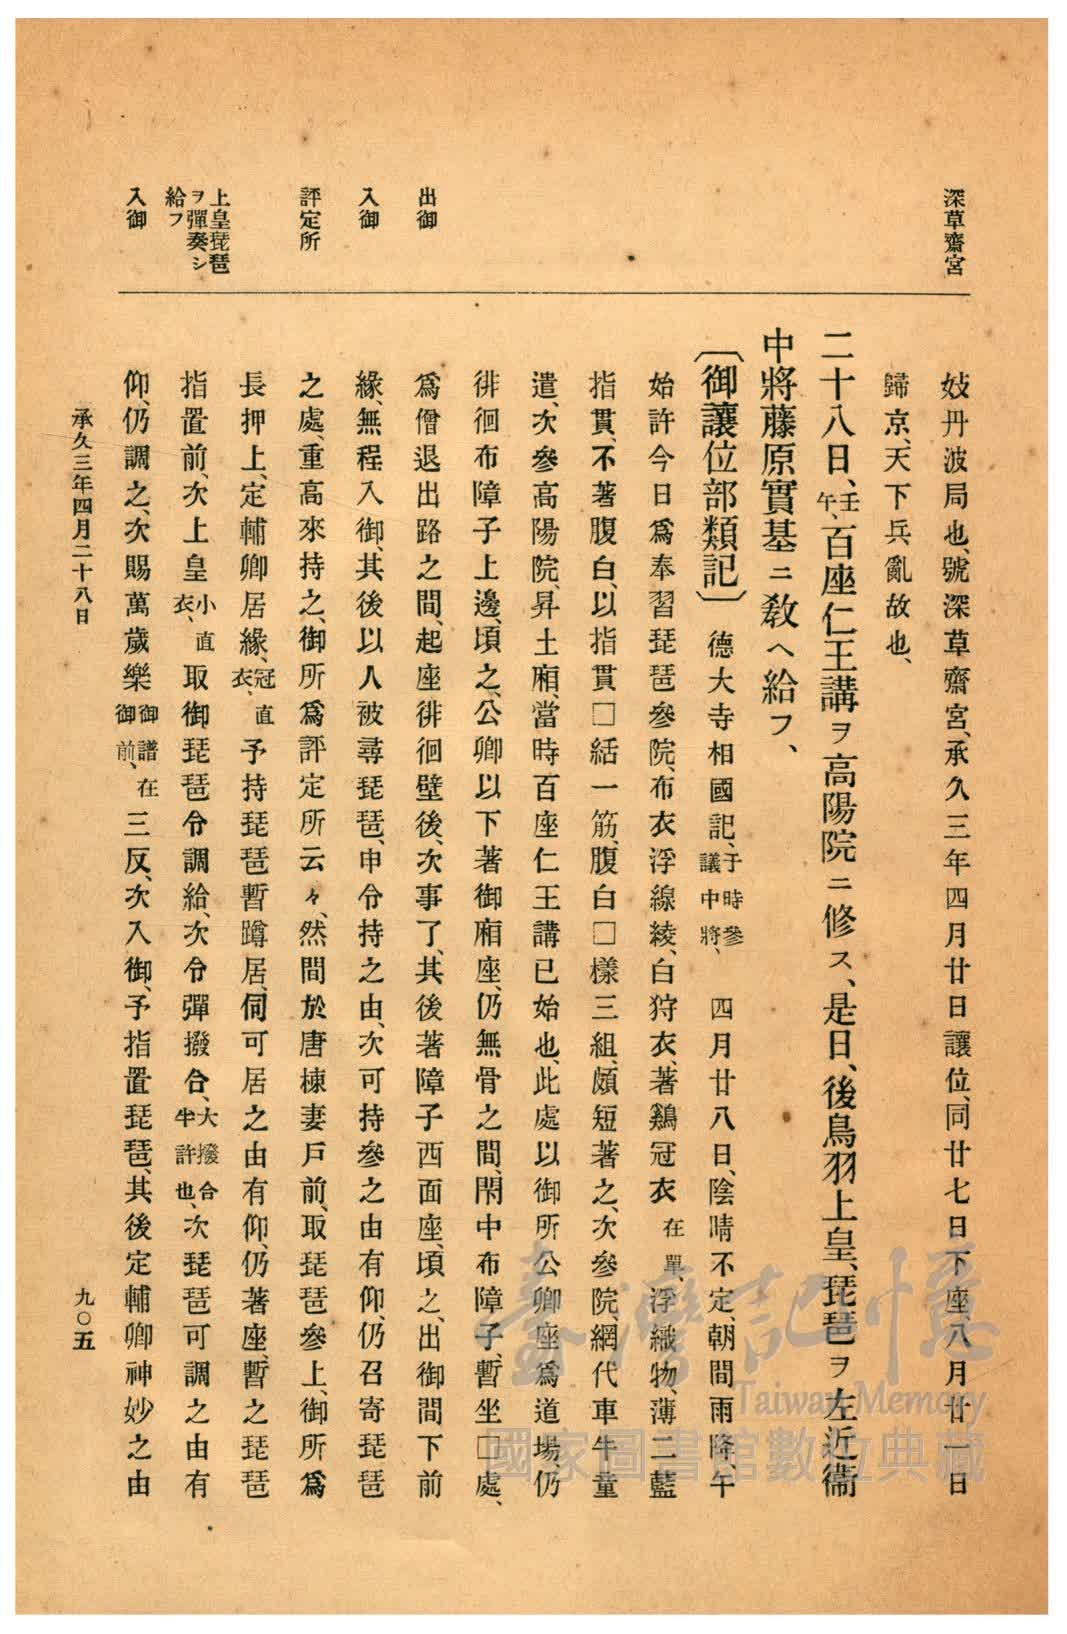 深草齋宮
妓丹波局也、號深草齋宮、承久三年四月廿日讓位、同廿七日下座、八月廿一日
歸京、天下兵亂故也、
二十八日、壬午、百座仁王講ヲ高陽院ニ修ス、是日、後鳥羽上皇、琵琶ヲ左近衞
中將藤原實基ニ敎ヘ給フ、
〔御讓位部類記〕德大寺相國記、于時參議中將、四月廿八日、陰晴不定、朝間雨降、午
始許今日爲奉習琵琶參院、布衣浮線綾、白狩衣、著鷄冠衣在單、浮織物、薄二藍
指貫、不著腹白、以指貫□括一筋、腹白□樣三組、頗短著之、次參院、網代車牛童
遣、次參高陽院、昇土廂、當時百座仁王講已始也、此處以御所公卿座爲道場、仍
徘徊布障子上邊、頃之、公卿以下著御廂座、仍無骨之間、閑中布障子、暫坐□處、
出御
爲僧退出路之間、起座徘徊壁後、次事了、其後著障子西面座、頃之、出御間下前
入御
緣、無程入御、其後以人被尋琵琶、申令持之由、次可持參之由有仰、仍召寄琵琶
評定所
之處、重高來持之、御所爲評定所云々、然間於唐棟妻戶前、取琵琶參上、御所爲
長押上、定輔卿居緣、冠直衣、予持琵琶暫蹲居、伺可居之由有仰、仍著座、暫之琵琶
上皇琵琶
ヲ彈奏シ
給フ
指置前、次上皇小直衣、取御琵琶令調給、次令彈撥合、大撥合半許也、次琵琶可調之由有
入御
仰、仍調之、次賜萬歲樂御譜在御前、三反、次入御、予指置琵琶、其後定輔卿神妙之由
承久三年四月二十八日
九〇五
臺灣記憶
Taiwan Memory
國家圖書館數位典藏